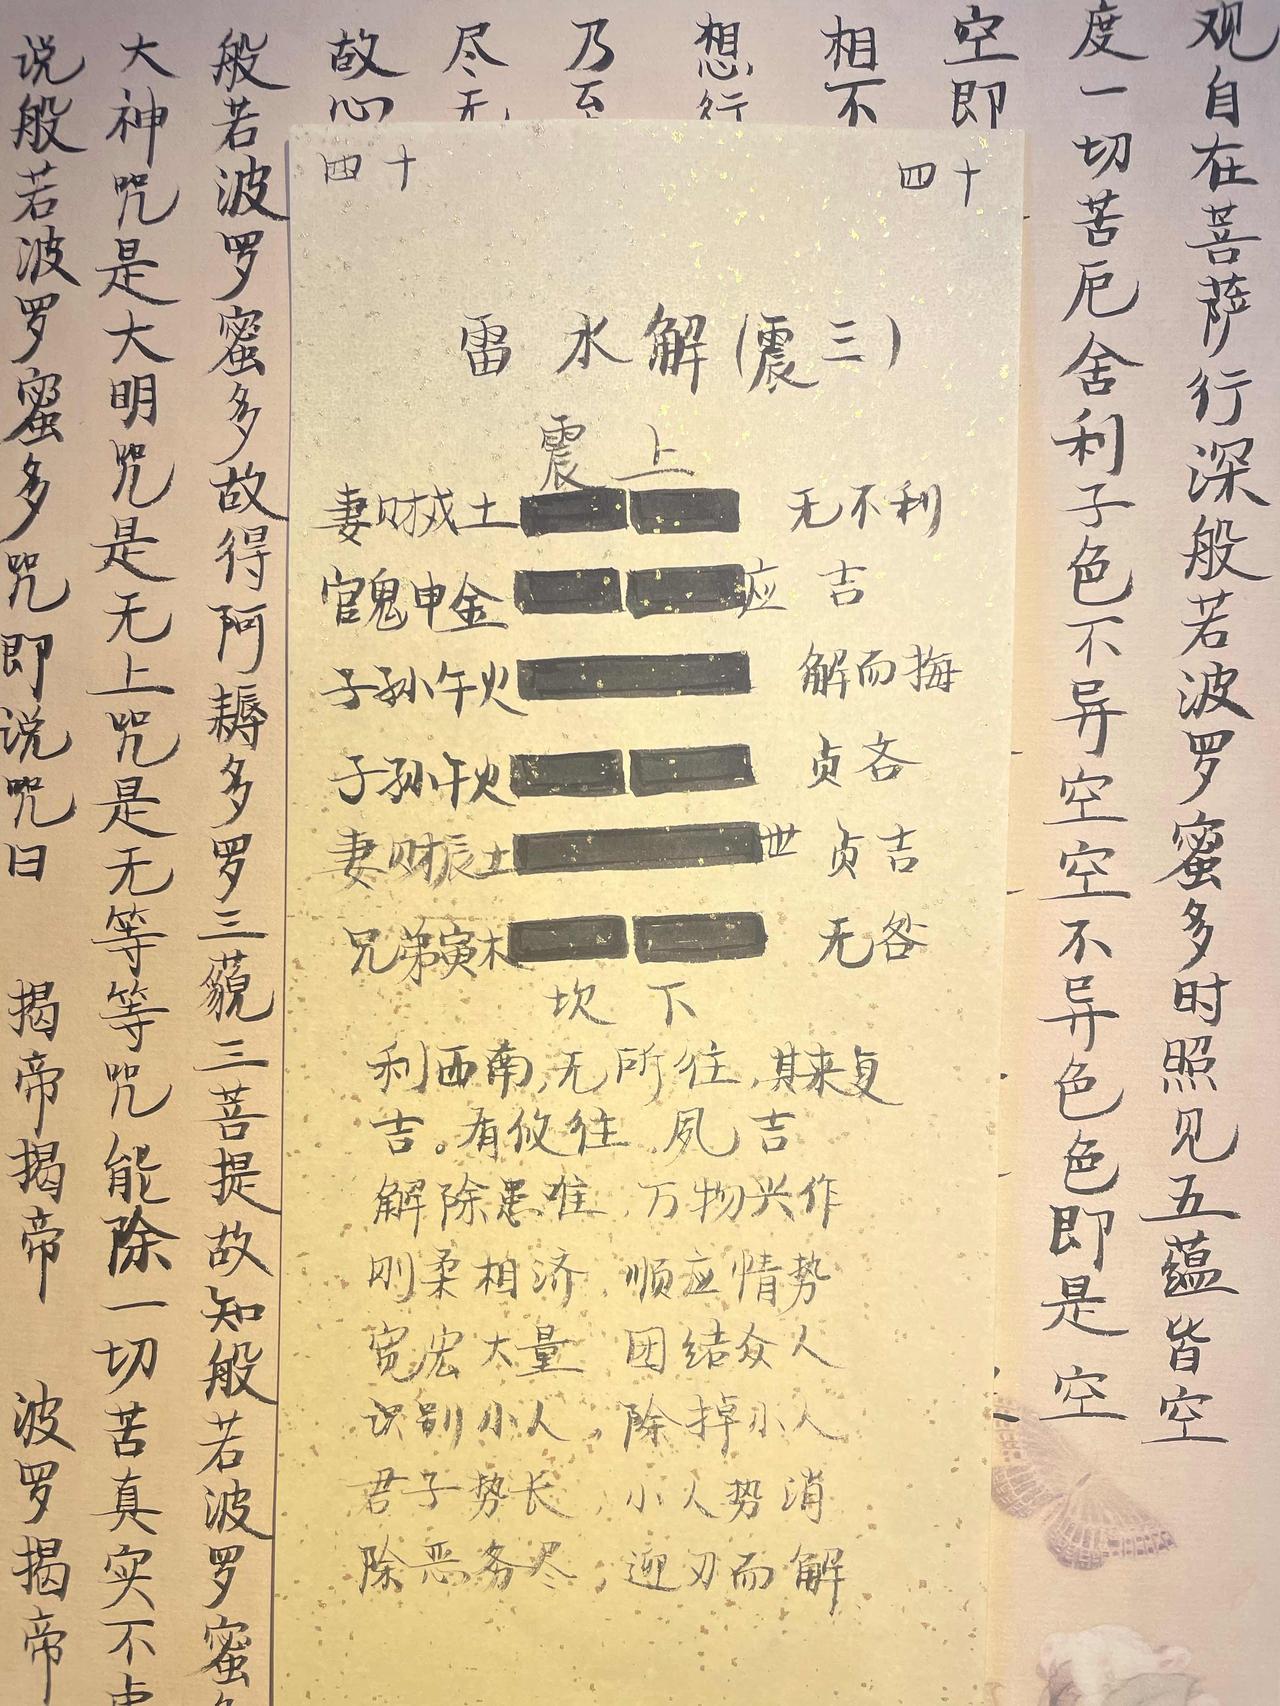 观自在菩萨行深般若波罗蜜多时照见五蕴皆空
度一切苦厄舍利子色不异空空不异色色即是空
空即
相不
想行
乃至
尽无
故心
般若波罗蜜多故得阿耨多罗三藐三菩提故知般若波罗蜜
大神咒是大明咒是无上咒是无等等咒能除一切苦真实不
说般若波罗蜜多咒即说咒曰 揭帝揭帝 波罗揭帝
四十 四十
雷水解(震三)
震上
妻财戌土 无不利
官鬼申金 应 吉
子孙午火 解而拇
子孙午火 贞吝
妻财辰土 世 贞吉
兄弟寅木 无咎
坎下
利西南,无所往,其来复
吉。有攸往,夙吉
解除患难,万物兴作
刚柔相济,顺应情势
宽宏大量 团结众人
识别小人,除掉小人
君子势长,小人势消
除恶务尽,迎刃而解